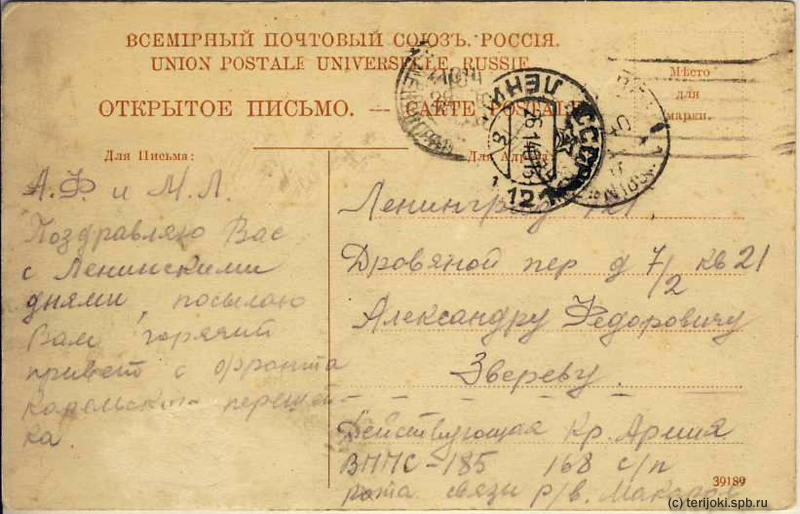 ВСЕМІРНЫЙ ПОЧТОВЫЙ СОЮЗЪ. РОССІЯ.
UNION POSTALE UNIVERSELLE. RUSSIE.
Мѣсто
для
марки.
ОТКРЫТОЕ ПИСЬМО. — CARTE POSTALE
Для Письма:
Для
ЛЕНИН
СССР
26.1.40
121
А. Ф. и М. Л.
Поздравляю Вас
с Ленинскими
днями, посылаю
Вам горячий
привет с фронта
Карельского перешей-
ка.
Ленинград 121
Дровяной пер д 7/2 кв 21
Александру Федоровичу
Звереву.
Действующая Кр. Армия
ВППС-185 168 с/п
рота связи р/в. Макаров
39189
(c) terijoki.spb.ru